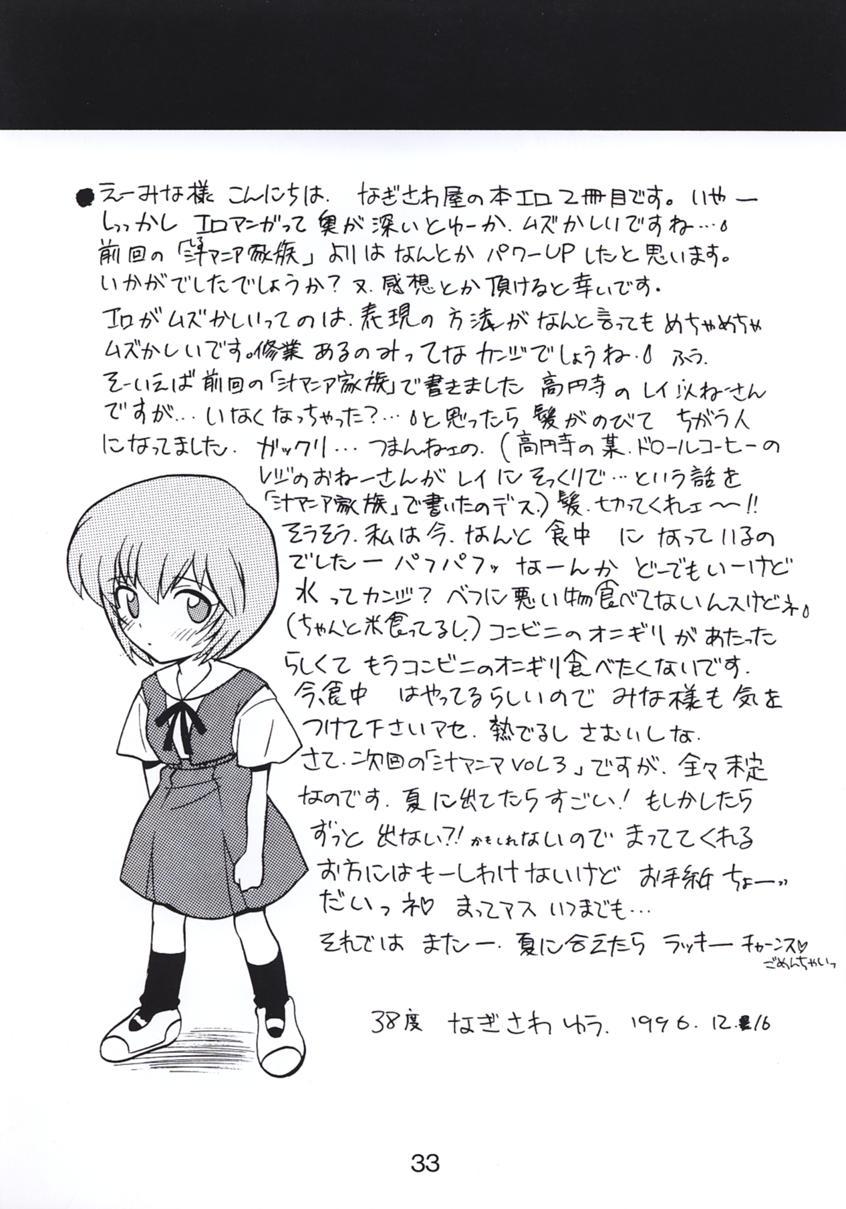 ●えーみな様 こんにちは、なぎさわ屋の本エロ2冊目です。いやー
しっかし エロマンガって 奥が 深いとゆーか、ムズかしいですね…
前回の「汁マニア家族」よりは なんとか パワーUPしたと思います。
いかがでしたでしょうか?又、感想とか頂けると幸いです・
エロがムズかしいってのは、表現の方法がなんと言っても めちゃめちゃ
ムズかしいです。修業 あるのみってな カンジでしょうね・ ふう、
そーいえば前回の「汁マニア家族」で書きました 高円寺の レイ似ねーさん
ですが…いなくなっちゃった?…と思ったら 髪がのびて ちがう人
になってました、ガックリ…つまんねェの、(高円寺の某、ドロールコーヒーの
レジのおねーさんがレイにそっくりで…という話を
「汁マニア家族」で書いたのデス、)髪、切ってくれェ〜!!
そうそう、私は今、なんと 食中 に なっているの
でしたー パフパフッ なーんか どーでもいーけど
水 ってカンジ? ベつに悪い物食べてないんスけどネ
(ちゃんと米食ってるし、)コンビニのオニギリ があたった
らしくて もうコンビニのオニギリ食べたくないです、
今、食中 はやってるらしいので みな様も 気を
つけて下さいアセ、熱でるし さむいしな、
さて、次回の「汁マニア VOL3」ですが、全々未定
なのです、夏に出てたらすごい! もしかしたら
ずっと 出ない?! かもしれないので まっててくれる
お方にはもーしわけないけど お手紙 ちょーッ
だいっネ♡ まってマス いつまでも…
それでは またー、夏に会えたら ラッキー チャーンス♡
ごめんちゃいっ
38度 なぎさわ ゆう、1996.12.16
33